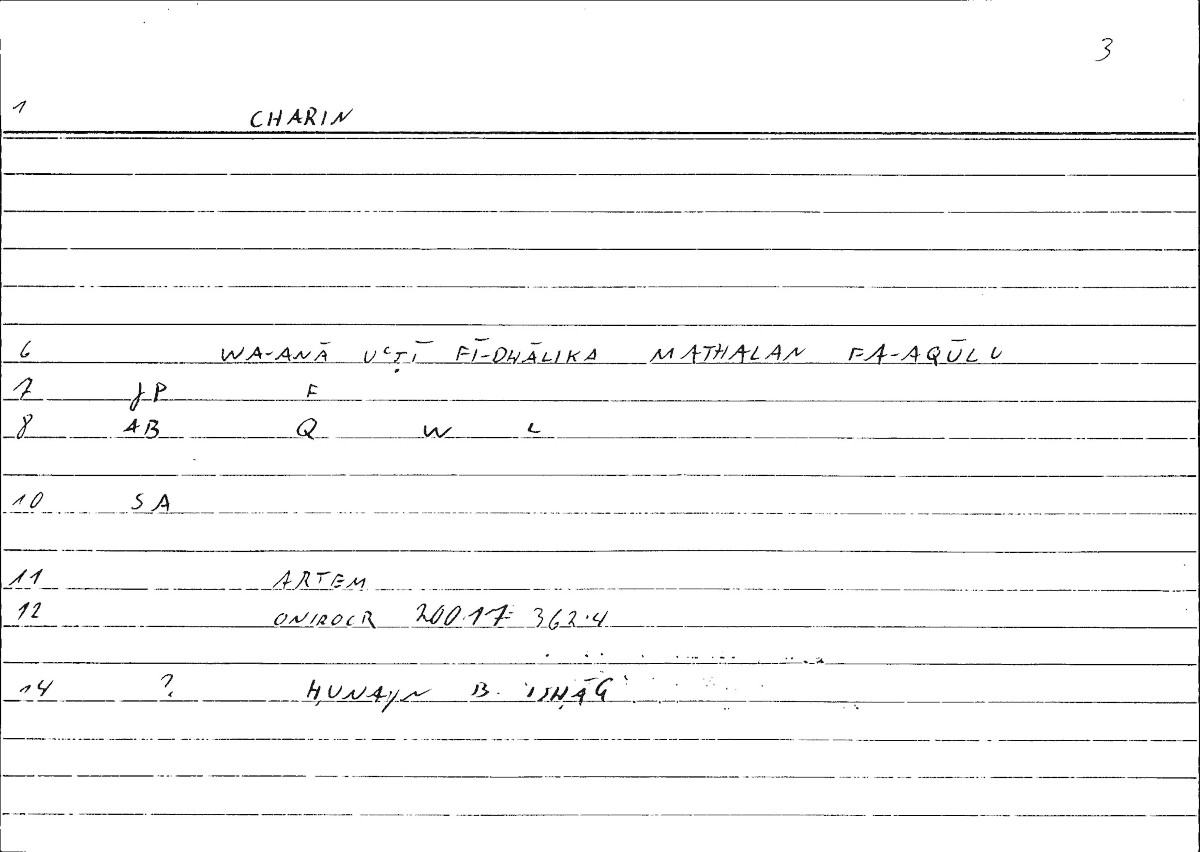 3
1 CHARIN
6 WA-ANĀ UʿṬĪ FĪ-DHĀLIKA MATHALAN FA-AQŪLU
7 JP F
8 AB Q W L
10 SA
11 ARTEM
12 ONIROCR 200.17 362.4
14 ? ḤUNAYN B. ISḤĀQ